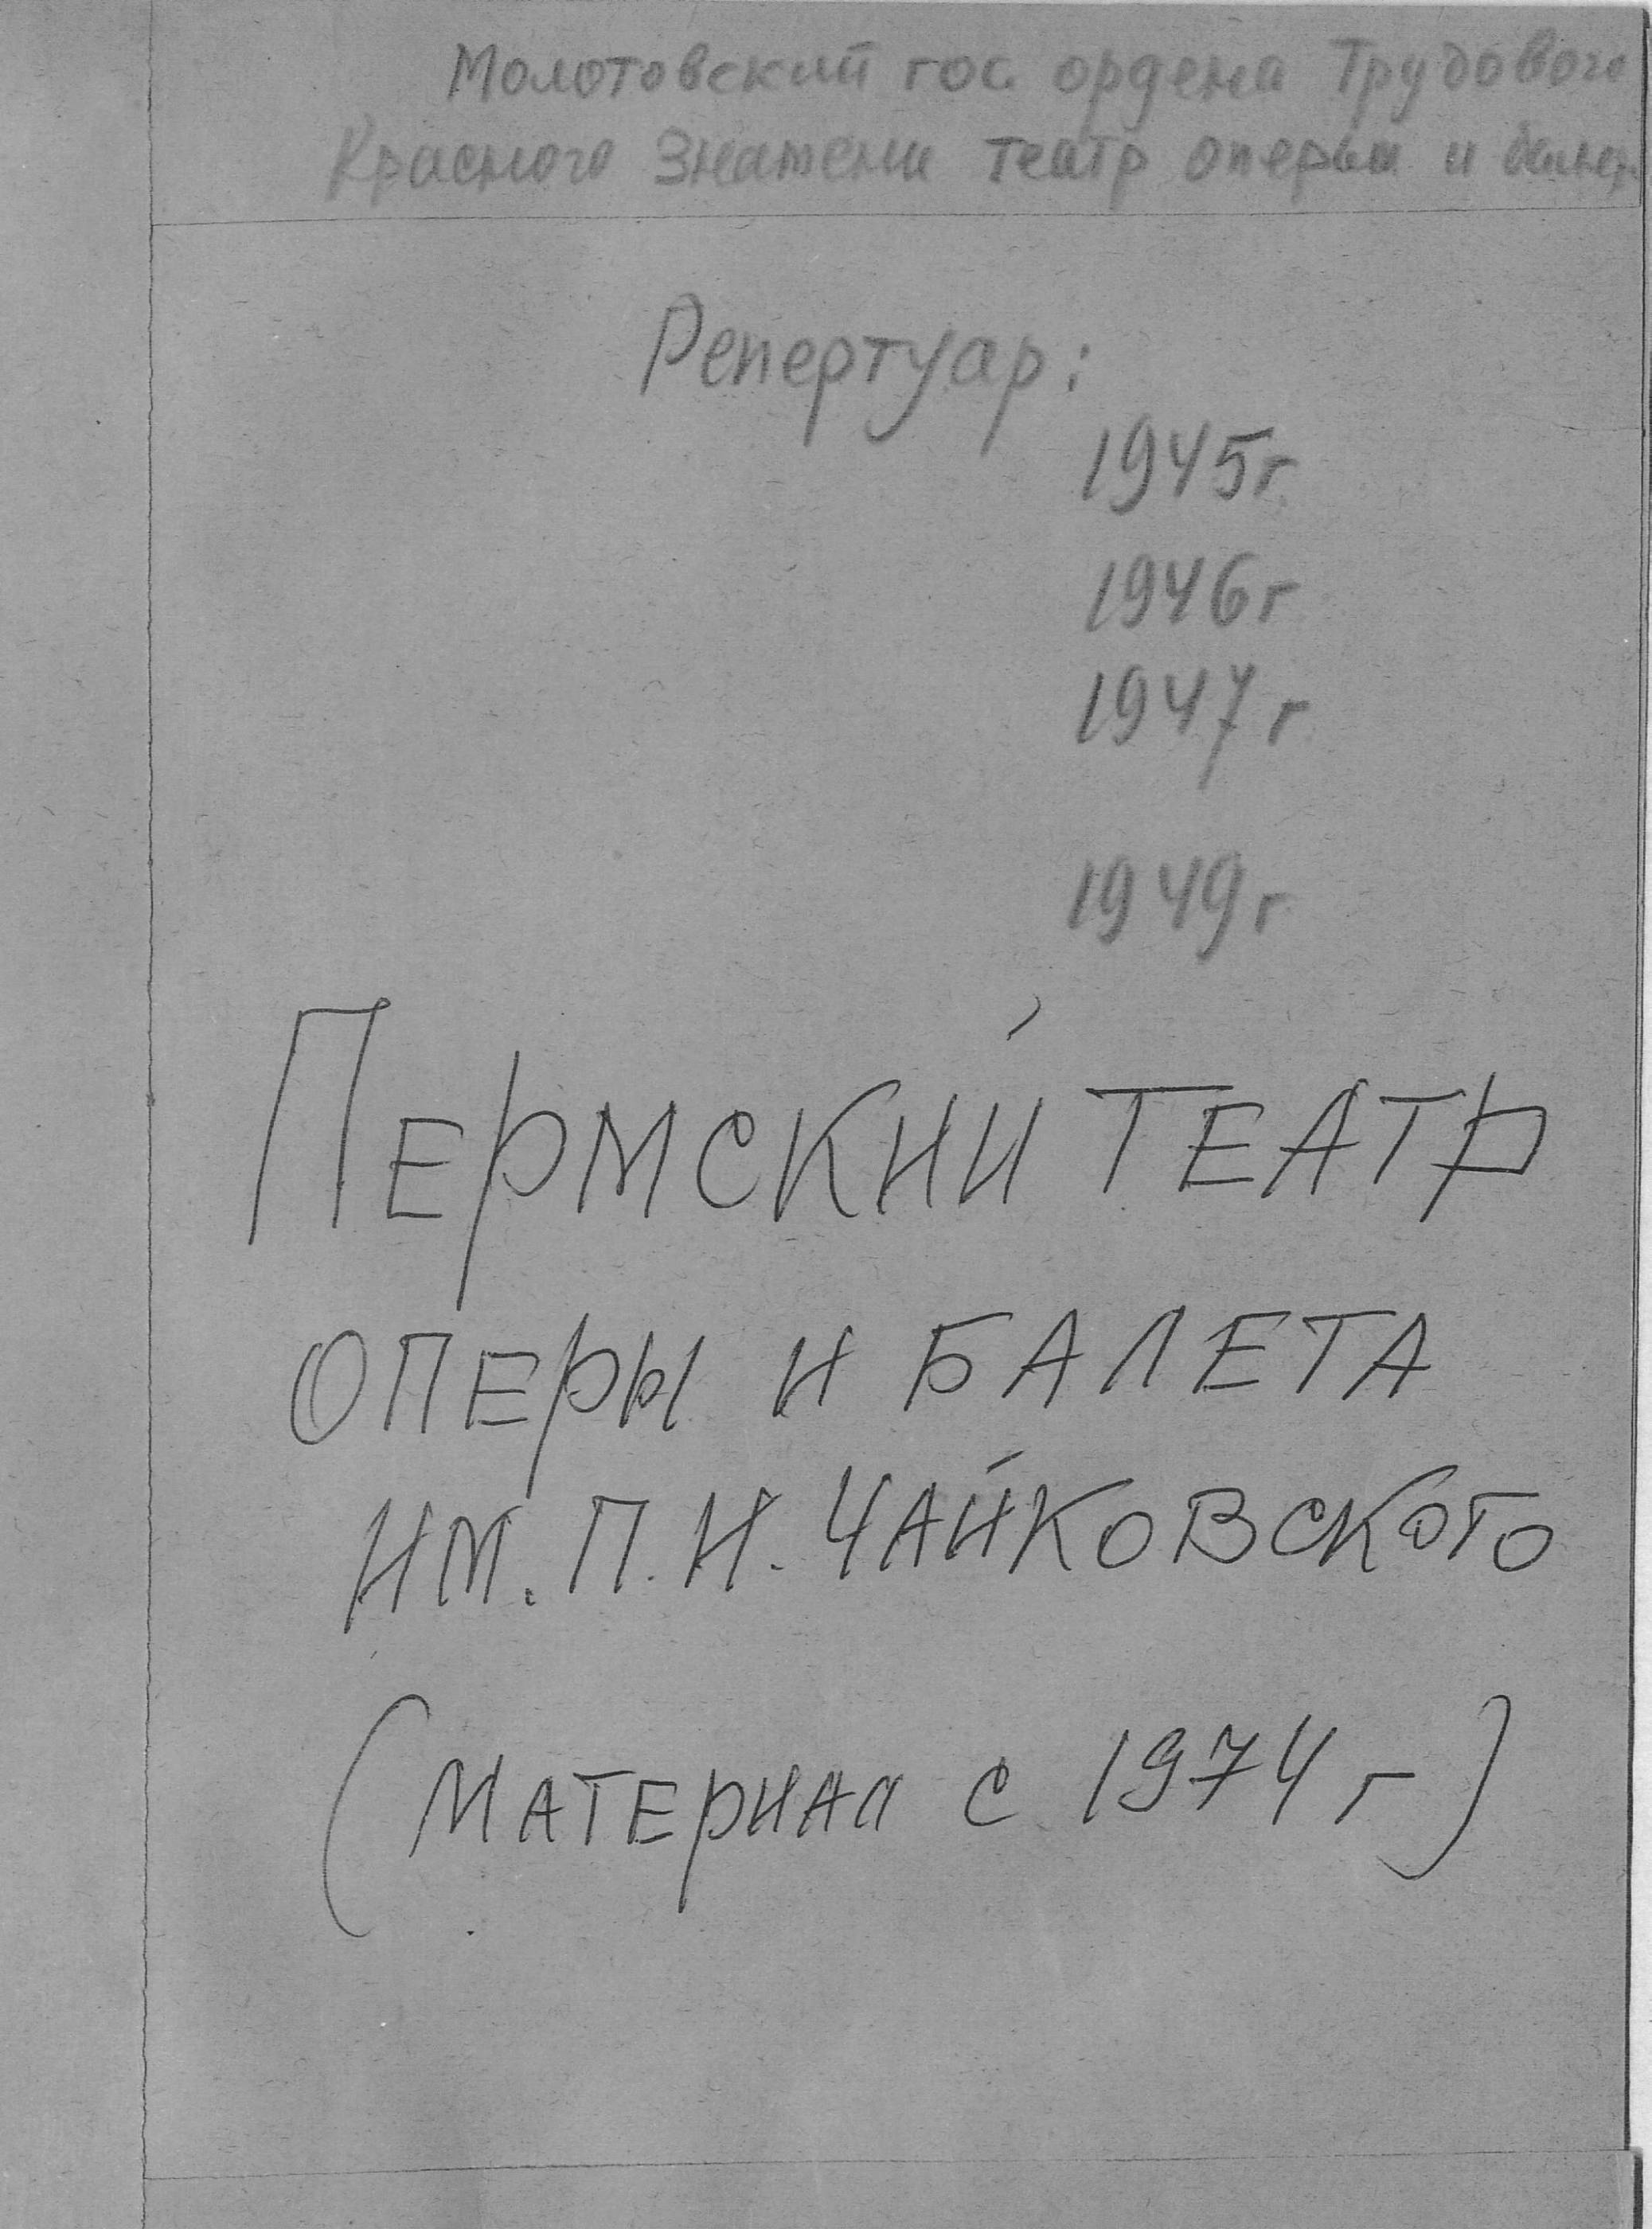 Молотовский гос. ордена Трудового
Красного Знамени театр оперы и балета
Репертуар:
1945г.
1946г
1947г
1949г
ПЕРМСКИЙ ТЕАТР
ОПЕРЫ И БАЛЕТА
ИМ. П. И. ЧАЙКОВСКОГО
(МАТЕРИАЛ С 1974 г)